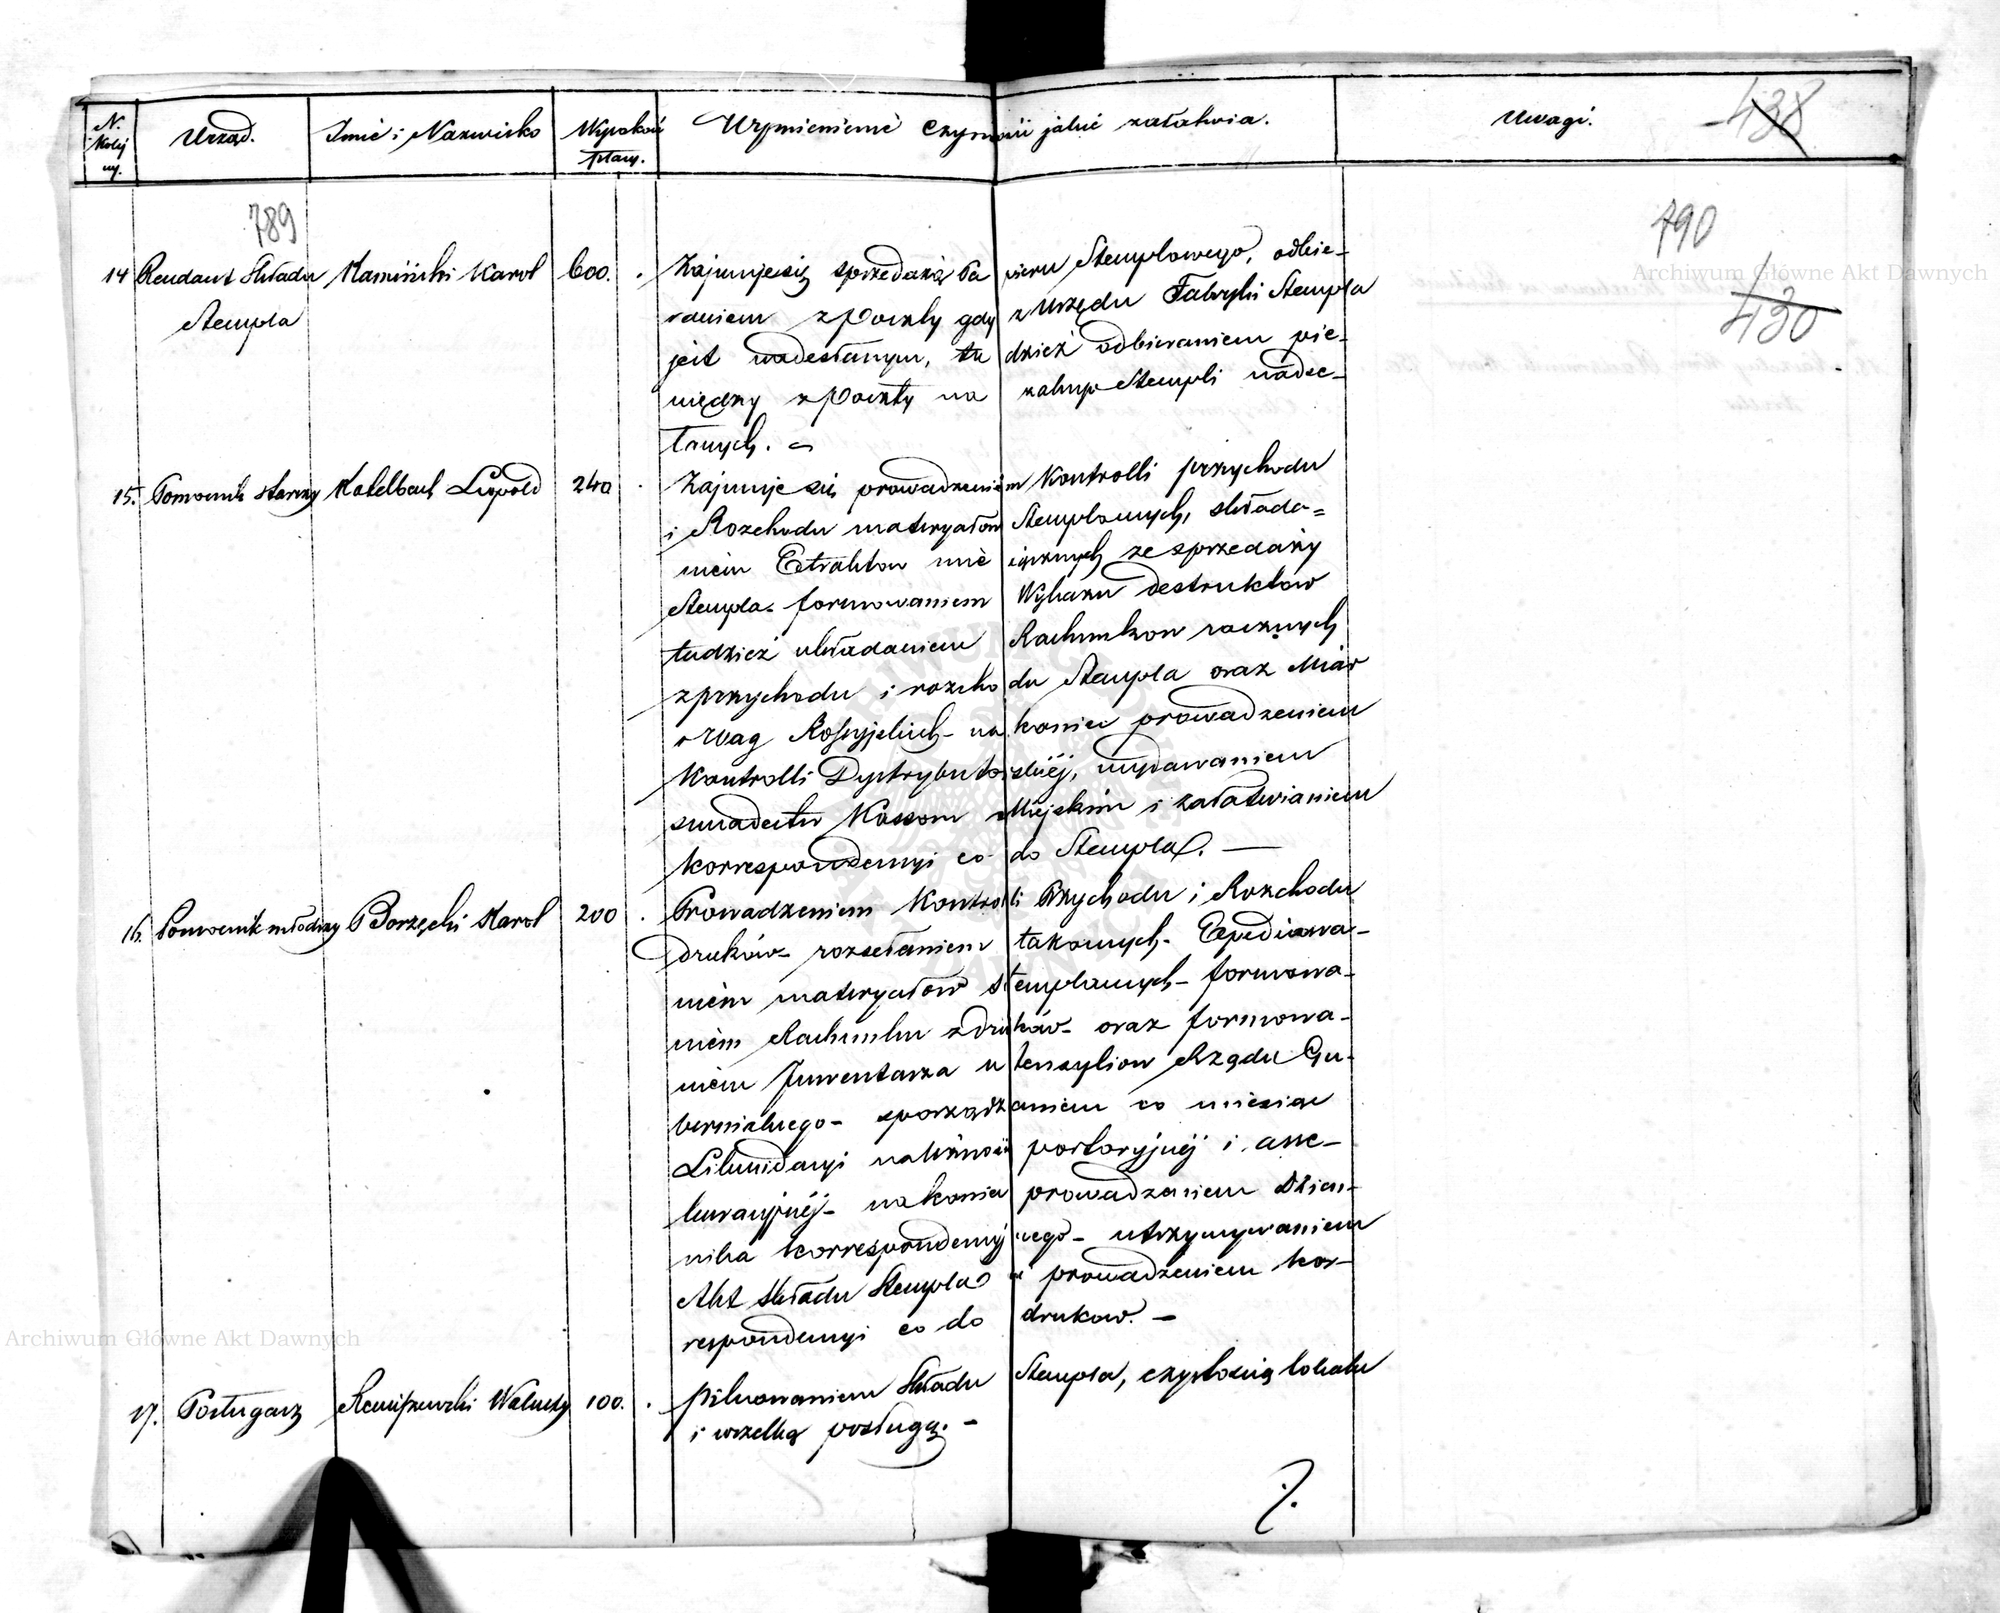 N. Kolej ny.
Urząd.
Imie i Nazwisko
Wysokość płacy.
Wymienienie czynności jakie załatwia.
Uwagi.
438
789
790
430
14 Rendant Składu Kamiński Karol 600. Zajmuje się sprzedażą Pa pieru Stemplowego, odbie-
Stempla raniem z Poczty gdy z Urzędu Fabryki Stempla
jest nadesłanym, tu dzież odbieraniem pie-
niędzy z Poczty na zakup Stempli nade-
słanych.
15. Pomocnik starszy Katelbach Leopold 240 Zajmuje się prowadzeniem Kontrolli przychodu
i Rozchodu materyałów Stemplowych, składa=
niem Extraktow mie sięcznych ze sprzedaży
Stempla- formowaniem Wykazu destruktow
tudzież układaniem Rachunkow rocznych
z przychodu i rozcho du Stempla oraz Miar
i Wag Rossyjskich- na koniec prowadzeniem
Kontrolli Dystrybutorskiéj, wydawaniem
Kassom Miejskim i załatwianiem
korrespondencyi co do Stempla. —
16. Pomocnik młodszy Borzęcki Karol 200 Prowadzeniem Kontrolli Przychodu i Rozchodu
druków- rozsełaniem takowych- Expediowa-
niem materyałów stemplowych- formowa-
niem Rachunku z druków- oraz formowa-
niem Inwentarza utensyliow Rządu Gu-
bernialnego- sporządzaniem co miesiąc
Likwidacyi należności portoryjnéj i asse-
kuracyjnéj- nakoniec prowadzeniem Dzien-
nika korrespondencyjnego- utrzymywaniem
Akt Składu Stempla i prowadzeniem kor-
respondencyi co do drukow. —
17. Posługacz Walenty 100. pilnowaniem Składu Stempla, czystością lokalu
i wszelką posługą. -
Archiwum Główne Akt Dawnych
Archiwum Główne Akt Dawnych